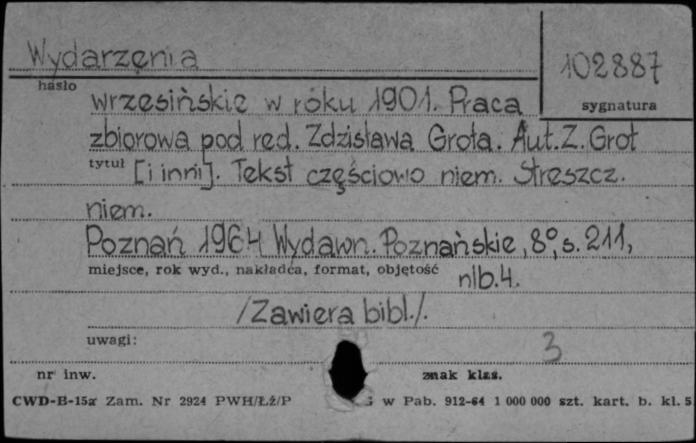 Wydarzenia
102887
hasło
wrzesińskie w roku 1901. Praca
sygnatura
zbiorowa pod red. Zdzisława Grota. Aut. Z. Grot
tytuł [i inni]. Tekst częściowo niem. Streszcz.
niem.
Poznań 1964 Wydawn. Poznańskie, 8°, s. 211,
miejsce, rok wyd., nakładca, format, objętość
nlb. 4.
/Zawiera bibl./.
uwagi:
3
nr inw.
znak klas.
CWD-B-15a Zam. Nr 2924 PWH/Łż/P w Pab. 912-64 1 000 000 szt. kart. b. kl. 5